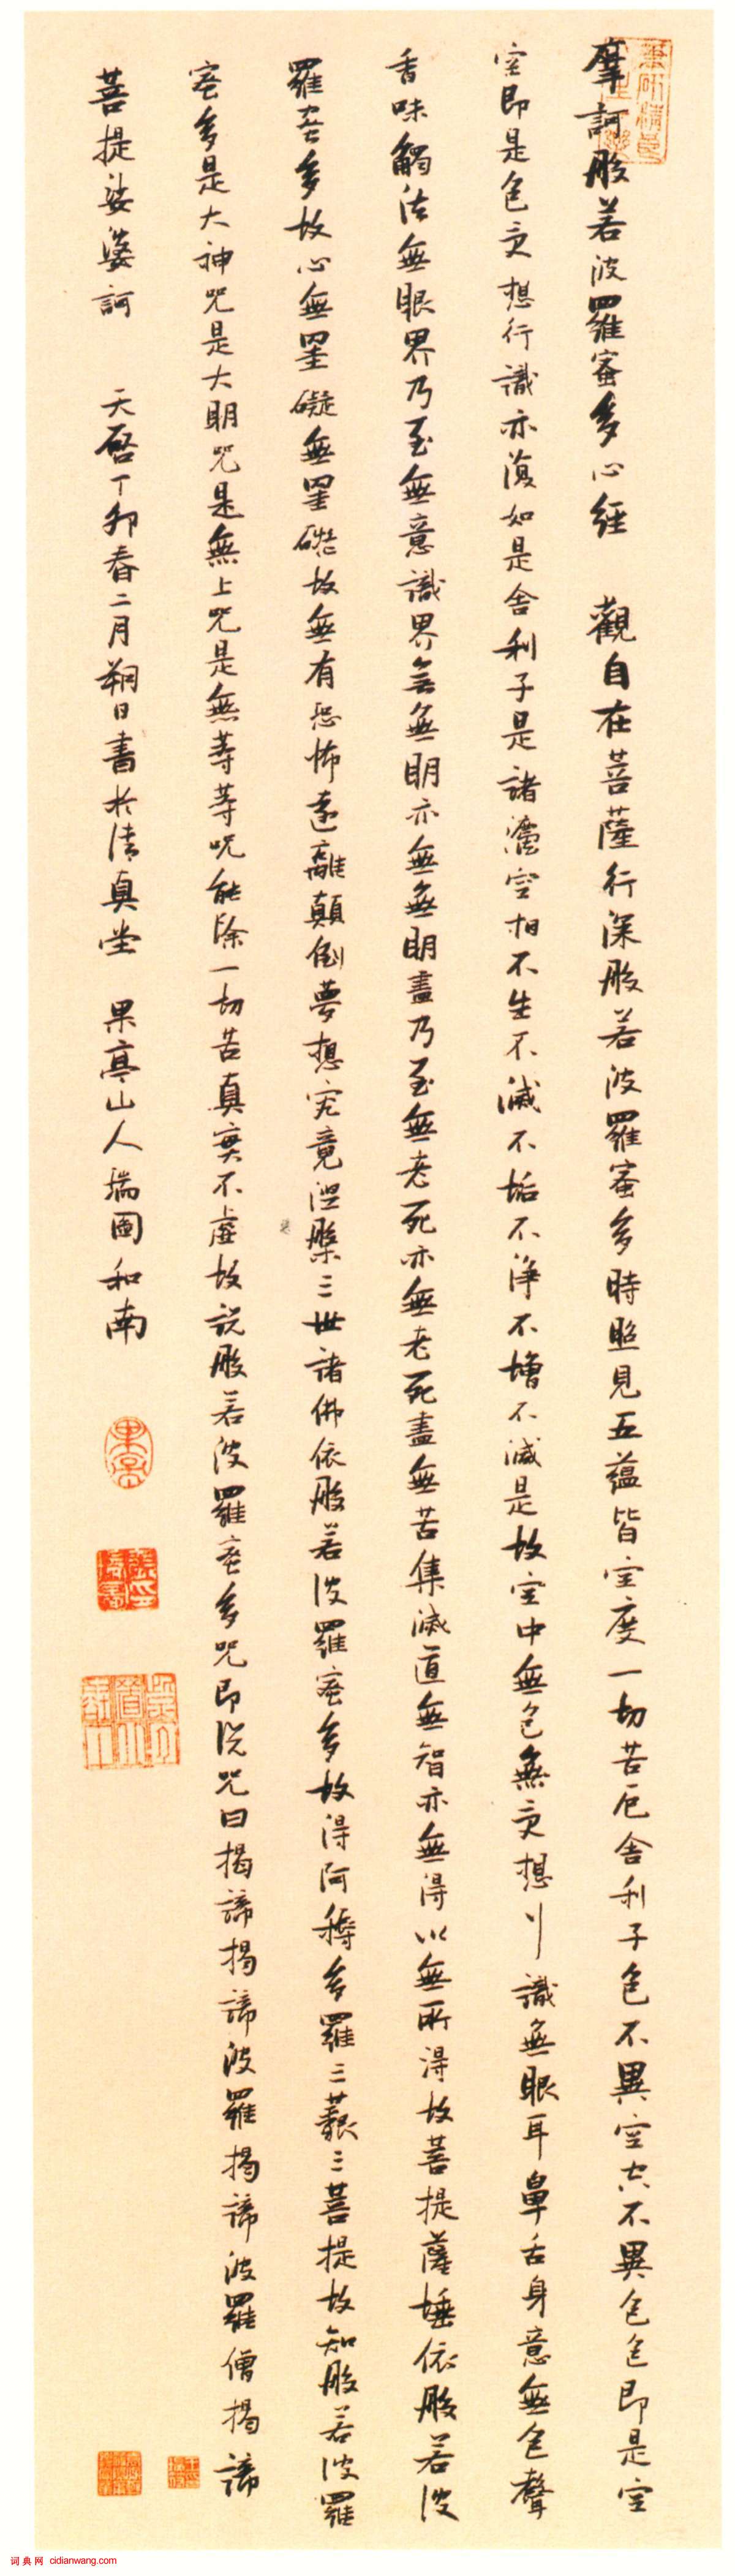 摩訶般若波羅蜜多心經 觀自在菩薩行深般若波羅蜜多時照見五蘊皆空度一切苦厄舍利子色不異空空不異色色即是空
空即是色受想行識亦復如是舍利子是諸灋空相不生不滅不垢不淨不增不減是故空中無色無受想行識無眼耳鼻舌身意無色聲
香味觸法無眼界乃至無意識界無無明亦無無明盡乃至無老死亦無老死盡無苦集滅道無智亦無得以無所得故菩提薩埵依般若波
羅蜜多故心無罣礙無罣礙故無有恐怖遠離顛倒夢想究竟涅槃三世諸佛依般若波羅蜜多故得阿耨多羅三藐三菩提故知般若波羅
蜜多是大神咒是大明咒是無上咒是無等等咒能除一切苦真實不虛故說般若波羅蜜多咒即說咒曰揭諦揭諦波羅揭諦波羅僧揭諦
菩提娑婆訶 天啓丁卯春二月朔日書於清真堂 果亭山人瑞圖和南
果亭
词典网 cidianwang.com